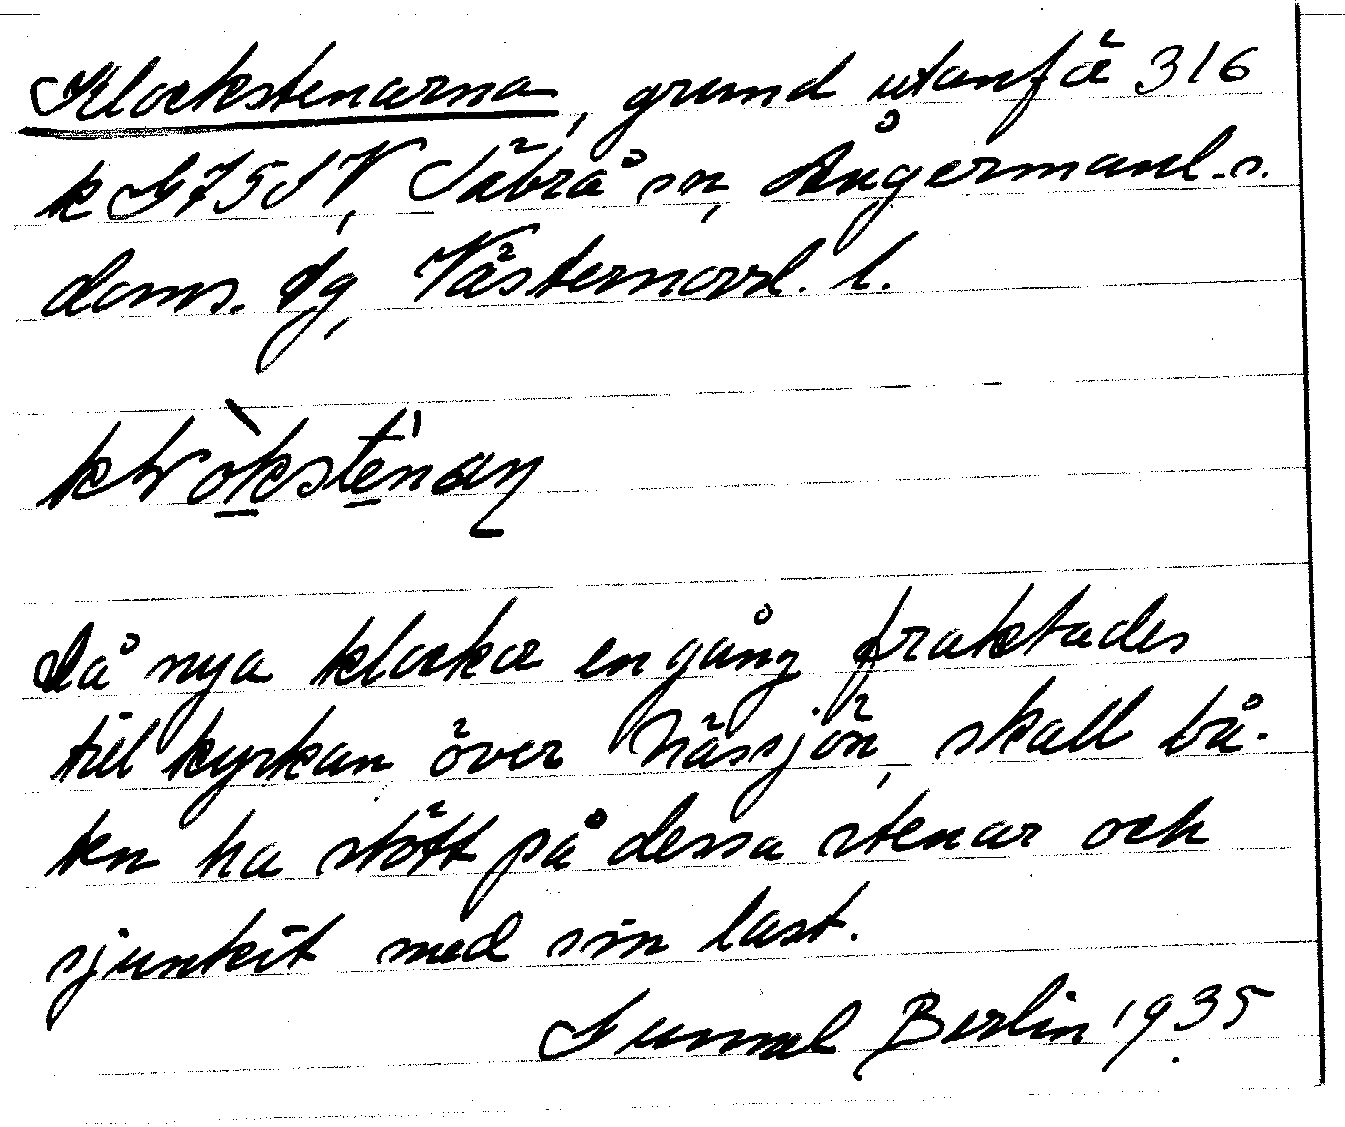 Klockstenarna, grund utanför 316
k G75SV, Säbrå sn, Ångermanl.s.
doms. dg, Västernorrl. l.
Då nya klockor en gång fraktades
till kyrkan över Nässjön, skall bå-
ten ha stött på dessa stenar och
sjunkit med sin last.
Gunnel Berlin 1935